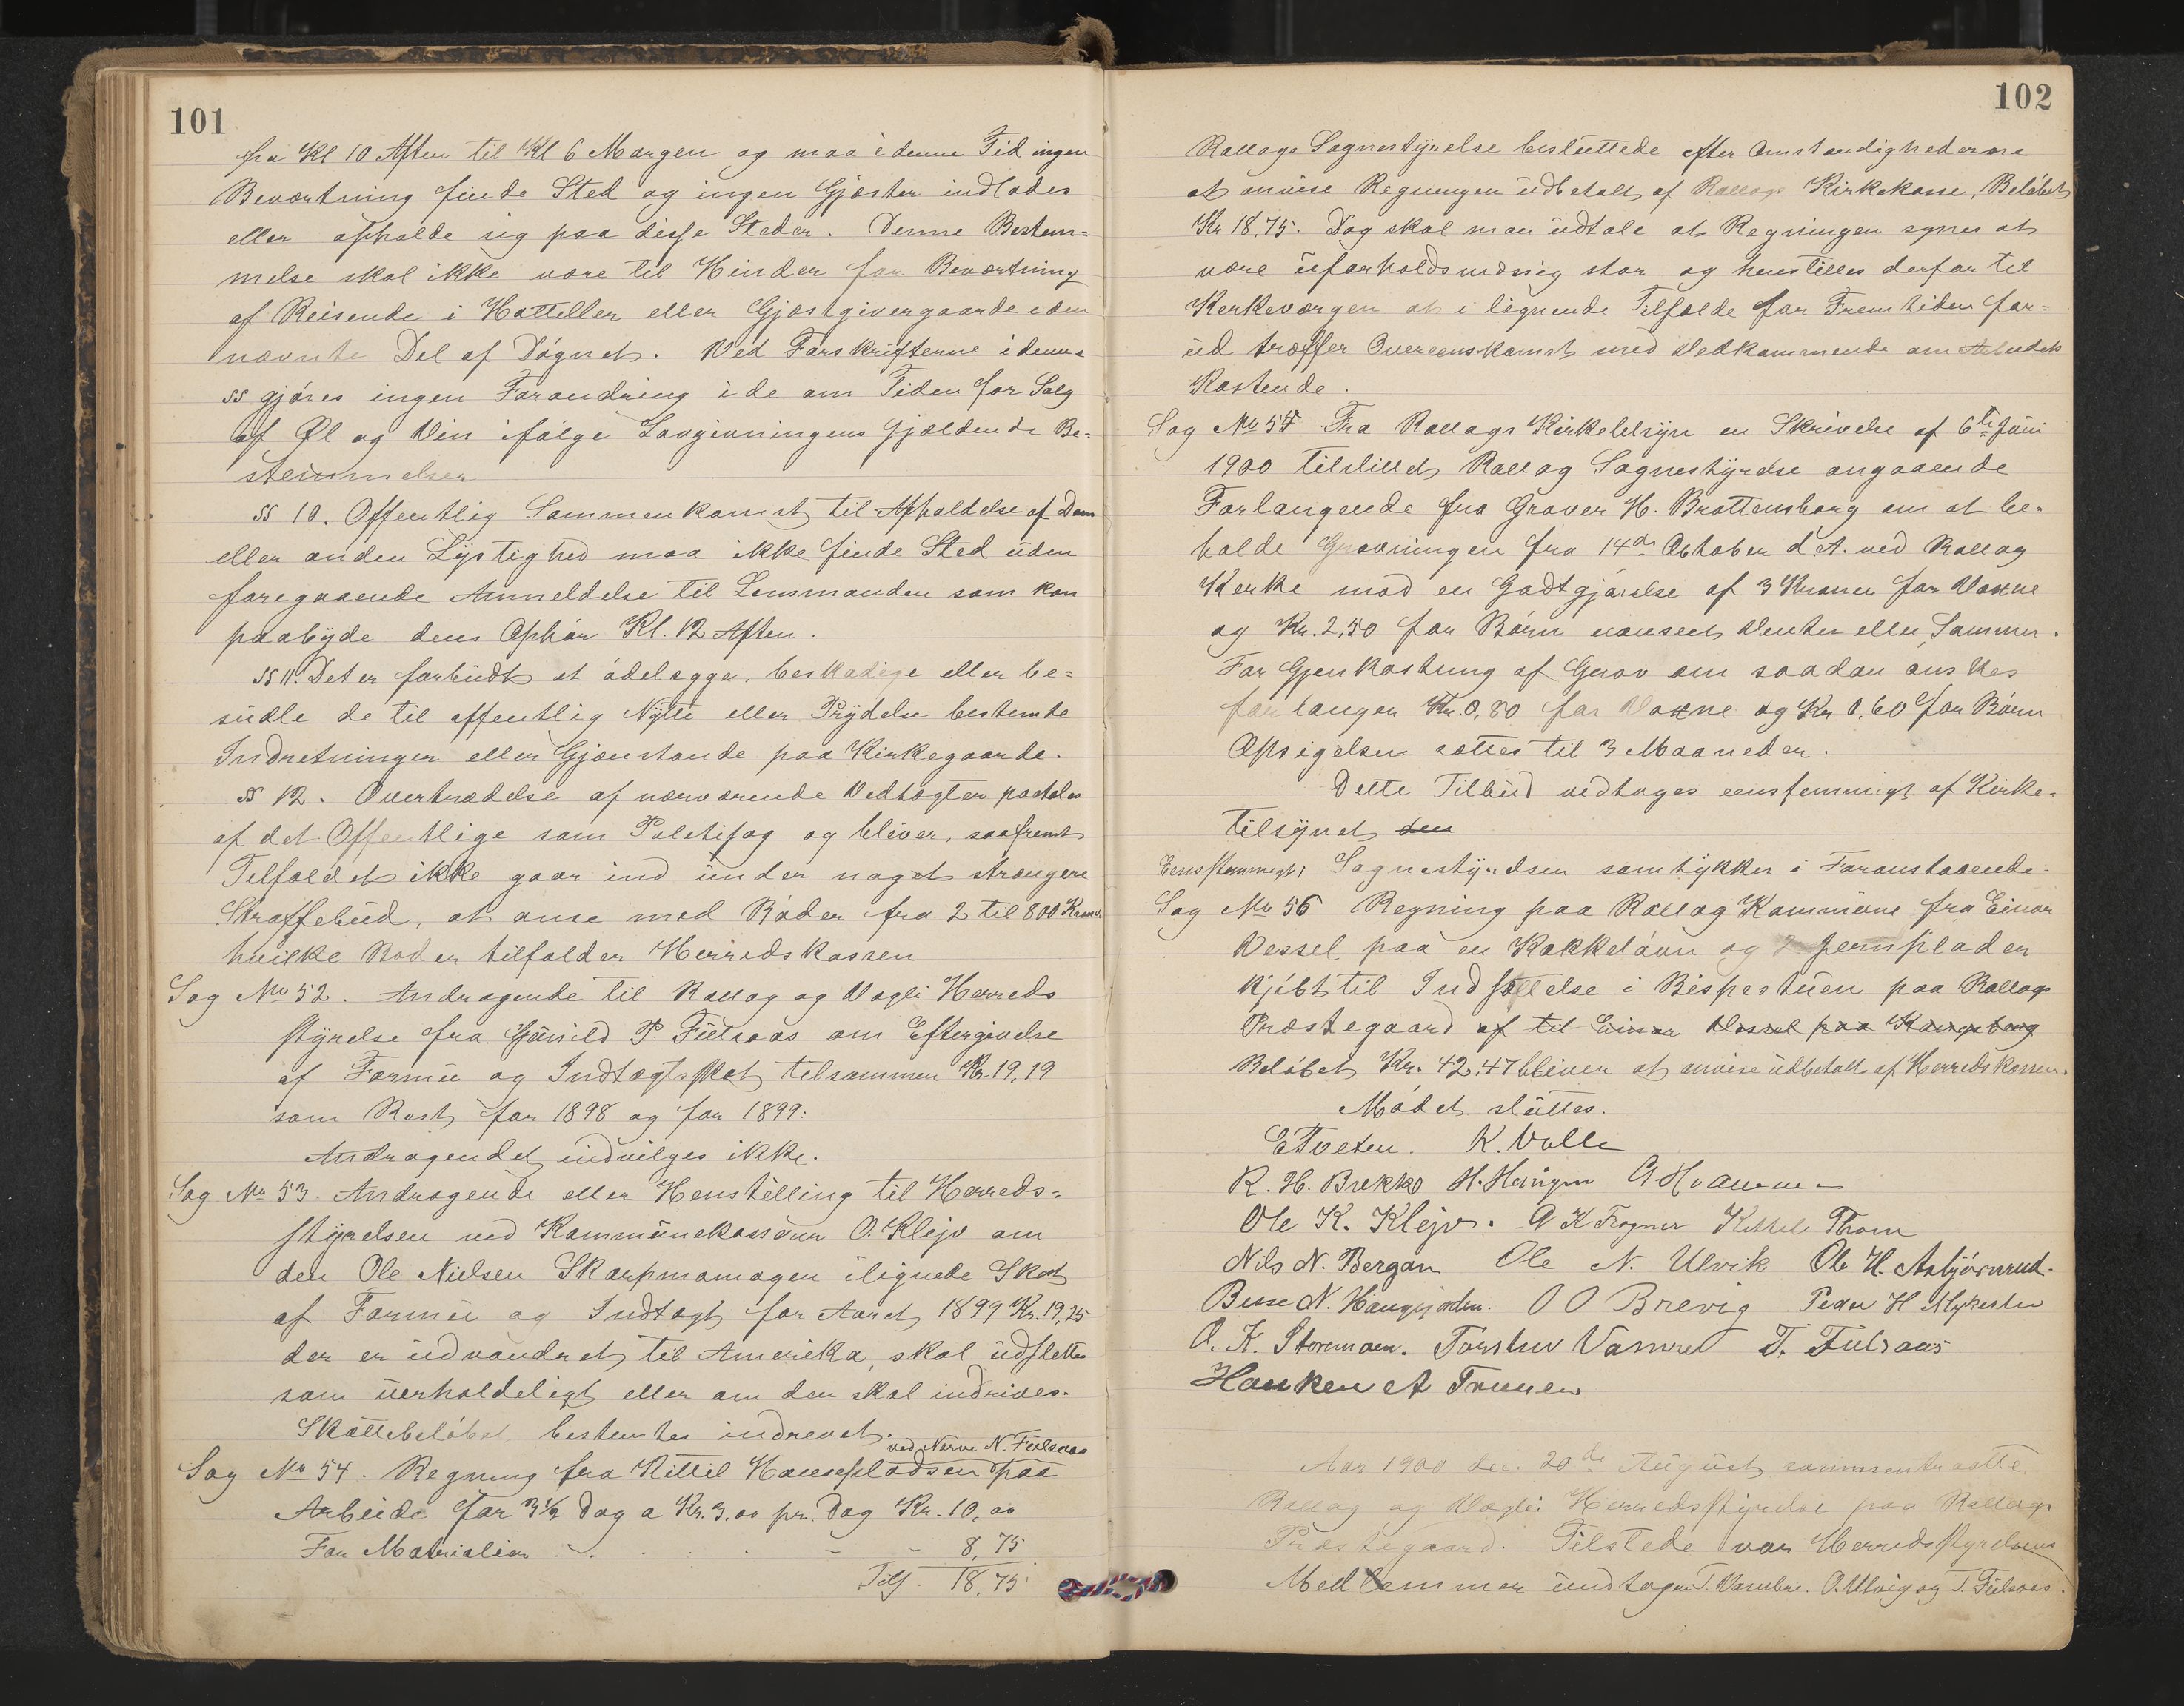 101
fra Kl 10 Aften til Kl 6 Morgen og maa i denne Tid ingen
Beværtning finde Sted og ingen Gjæster indlades
eller opholde sig paa disse Steder. Denne Bestem=
melse skal ikke være til Hinder for Beværtning
af Reisende i Hotteller eller Gjæstgivergaarde i den
nævnte Del af Døgnet. Ved Forskrifterne i denne
§§ gjøres ingen Forandring i de om Tiden for Salg
af Øl og Vin ifølge Lovgivningens gjældende Be=
stemmelser
§§ 10. Offentlig Sammenkomst til Afholdelse af Dans
eller anden Lystighed maa ikke finde Sted uden
foregaaende Anmeldelse til Lensmanden som kan
paabyde dens Ophør Kl. 12 Aften.
§§ 11. Det er forbudt at ødelægge, beskadige eller be=
sudle de til offentlig Nytte eller Prydelse bestemte
Indretninger eller Gjenstande paa Kirkegaarde.
§§ 12. Overtrædelse af nærværende Vedtægter paatales
af det Offentlige som Politisag og bliver, saafremt
Tilfældet ikke gaar ind under noget strængere
Straffebud, at anse med Bøder fra 2 til 800 Kroner
hvilke Bøder tilfalder Herredskassen
Sag No 52. Andragende til Rollag og Vegli Herreds
styrelse fra Gunild P. Fulsaas om Eftergivelse
af Formue og Indtægtsskat tilsammen Kr. 19,19
som Rest for 1898 og for 1899:
Andragendet indvilges ikke.
Sag No 53. Andragende eller Henstilling til Herreds=
styrelsen ved Kommunekasserer O. Klejv om
den Ole Nielsen Skarpmomogen ilignede Skat
af Formue og Indtægt for Aaret 1899 Kr. 19,25
der er udvandret til Amerika, skal udslettes
som uerholdeligt eller om den skal indrives.
Skattebeløbet bestemtes indrevet.
ved Nerve N. Fulsaas
Sag No 54. Regning fra Kittil Haugspladsen paa
Arbeide for 3½ Dag a Kr. 3.00 pr. Dag Kr. 10,00
For Materialier 8,75
Tils. 18,75
102
Rollags Sognestyrelse besluttede efter Omstændighederne
at anvise Regningen udbetalt af Rollags Kirkekasse, Beløbet
Kr 18,75. Dog skal man udtale at Regningen synes at
være uforholdsmæssig stor og henstilles derfor til
Kirkeværgen at i lignende Tilfælde for Fremtiden for=
ud træffer Overenskomst med Vedkommende om Arbeidets
Kostende.
Sag No 55 Fra Rollags Kirketilsyn en Skrivelse af 6te Juni
1900 tilstillet Rollag Sognestyrelse angaaende
Forlangende fra Graver H. Brattensborg om at be=
holde Gravningen fra 14de Oktober d A. ved Rollag
Kirke mod en Godtgjørelse af 3 Kroner for Voxne
og Kr. 2,50 for Børn uanseet Vinter eller Sommer.
For Gjenkastning af Grav om saadan ønskes
forlanges Kr. 0,80 for Voxne og Kr 0,60 for Børn
Opsigelsen sættes til 3 Maaneder.
Dette Tilbud vedtoges eenstemmigt af Kirke=
tilsynet den
Eenstemmigt, Sognestyrelsen samtykker i Foranstaaende.
Sag No 56 Regning paa Rollag Kommune fra Einar
Vessel paa en Kakkelovn og 2 Jernplader
kjøbt til Indsættelse i Bispestuen paa Rollags
Præstegaard af til Einar Vessel paa Kongsberg
Beløbet Kr. 42,47 bliver at anvise udbetalt af Herredskassen.
Mødet sluttes.
E Tveten. K. Valle
R. H. Brekke H. Heingen G Hvammen
Ole K. Klejv. G K Fragner Kittil Thom
Nils N. Bergan Ole N. Ulvik Ole H. Asbjørnrud.
Besse N. Haugjorden. O O Brevig Peder H Mykestu
O. K. Stormoen. Torsten Vamre T. Fulsaas
Haaken A Traaen
Aar 1900 den 20de August sammentraatte
Rollag og Vegli Herredsstyrelse paa Rollags
Præstegaard. Tilstede var Herredsstyrelsens
Medlemmer undtagen T. Vambre. O. Ulvig og T. Fulsaas.